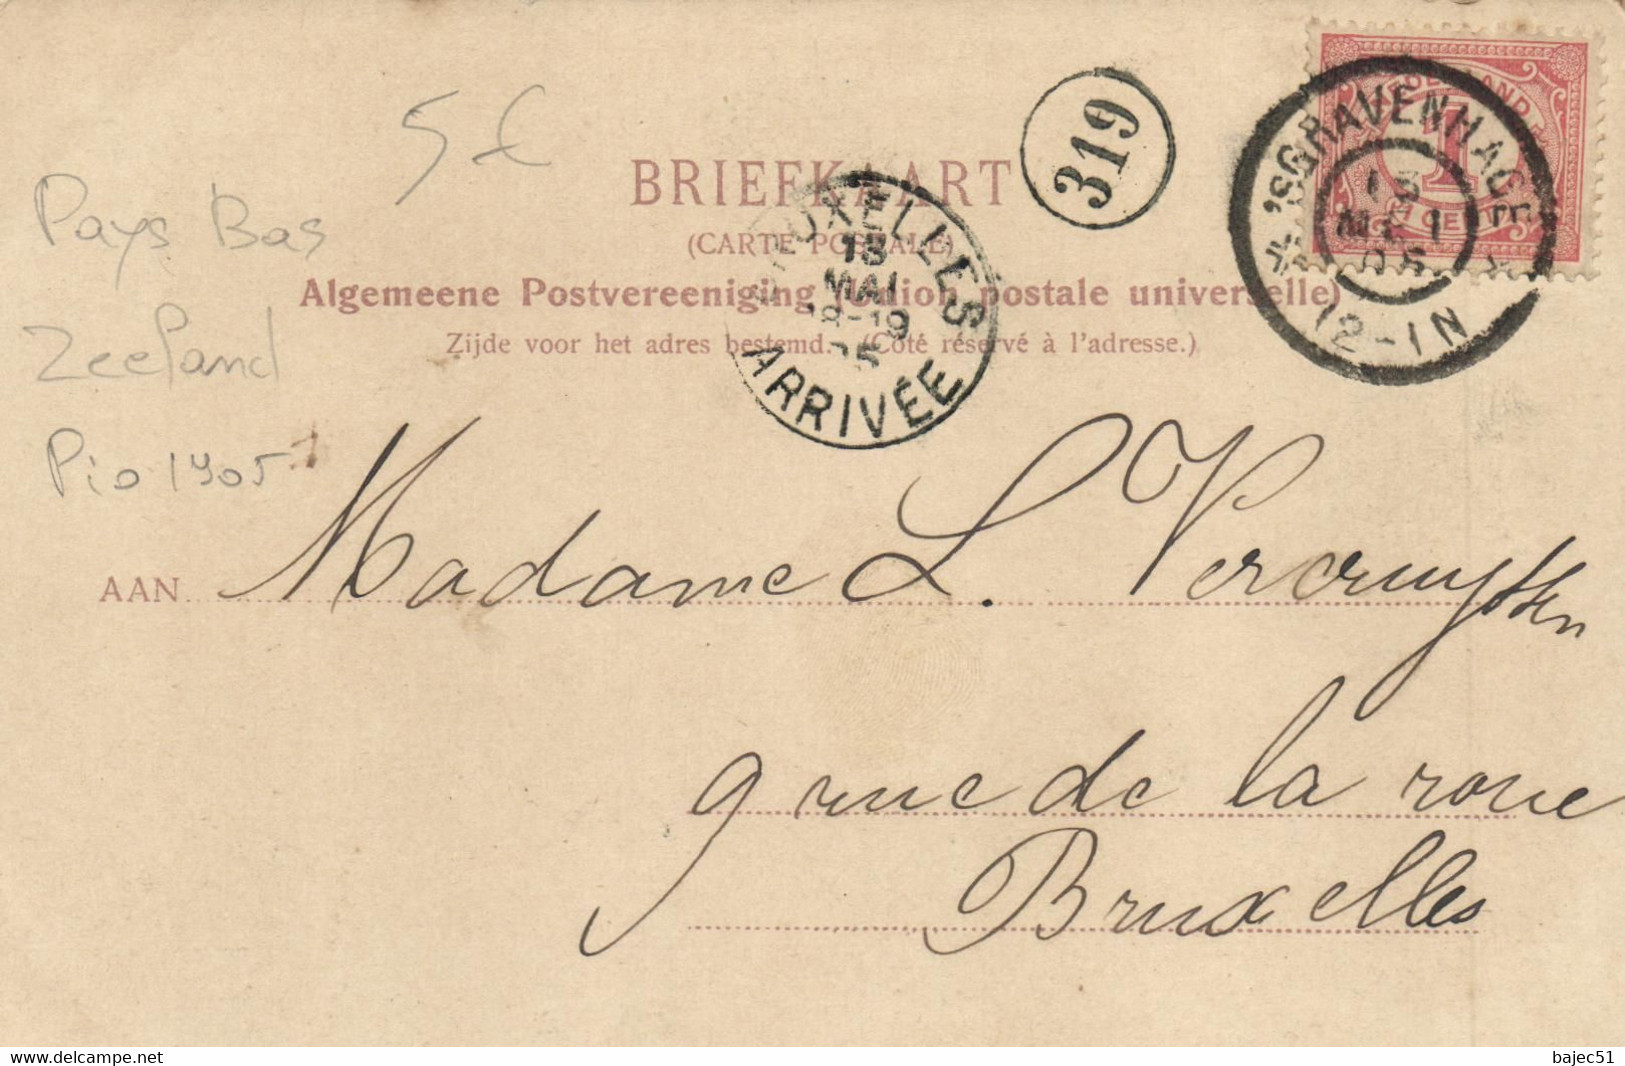 5 €
319
Pays Bas
Zeeland
Pio 1905
BRIEFKAART
(CARTE POSTALE)
Algemeene Postvereeniging (Union postale universelle)
Zijde voor het adres bestemd. (Côté réservé à l'adresse.)
BRUXELLES
18
MAI
18-19
05
ARRIVÉE
'SGRAVENHAGE
15
MEI
05
12-1N
NEDERLAND
1
CENT
AAN Madame L. Vercruyssen
9 rue de la roue
Bruxelles
delcampe.net
bajec51